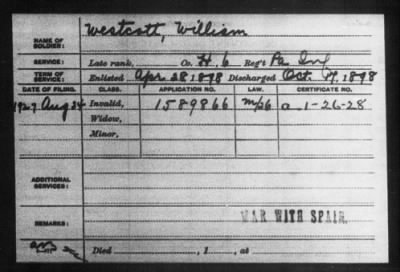 NAME OF SOLDIER: Westcott, William
SERVICE: Late rank, Co. H, 6 Reg't Pa Inf
TERM OF SERVICE: Enlisted Apr 28 1898 Discharged Oct. 17, 1898
DATE OF FILING. CLASS. APPLICATION NO. LAW. CERTIFICATE NO.
1927 Aug 24 Invalid, 1589866 a-1-26-28
Widow,
Minor,
ADDITIONAL SERVICES:
REMARKS: WAR WITH SPAIN.
Died , 1 , at